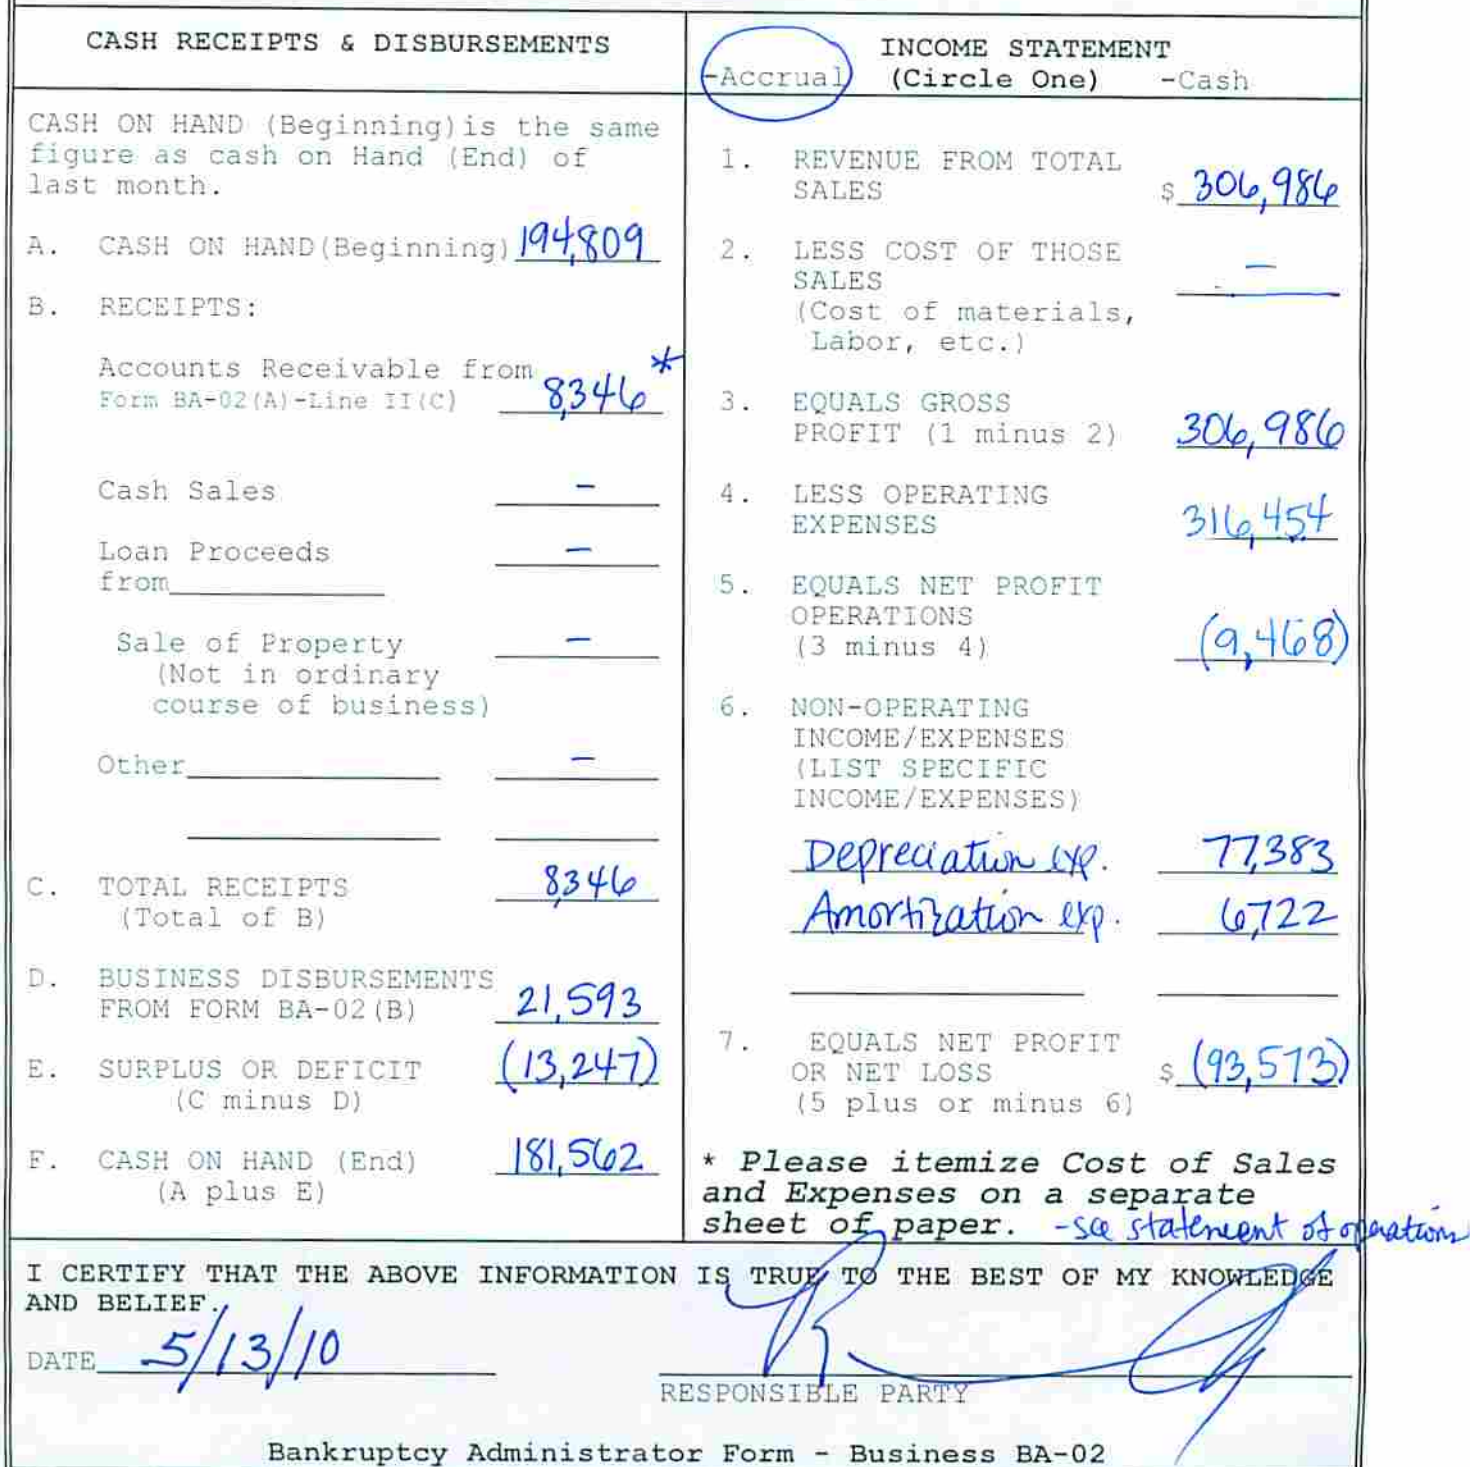 CASH RECEIPTS & DISBURSEMENTS
CASH ON HAND (Beginning)is the same
figure as cash on Hand (End) of
last month.
A. CASH ON HAND(Beginning) 194,809
B. RECEIPTS:
Accounts Receivable from
Form BA-02(A)-Line II(C) 8,346 *
Cash Sales -
Loan Proceeds -
from
Sale of Property -
(Not in ordinary
course of business)
Other -
C. TOTAL RECEIPTS 8,346
(Total of B)
D. BUSINESS DISBURSEMENTS
FROM FORM BA-02(B) 21,593
E. SURPLUS OR DEFICIT (13,247)
(C minus D)
F. CASH ON HAND (End) 181,562
(A plus E)
INCOME STATEMENT
-Accrual (Circle One) -Cash
1. REVENUE FROM TOTAL
SALES $ 306,986
2. LESS COST OF THOSE
SALES -
(Cost of materials,
Labor, etc.)
3. EQUALS GROSS
PROFIT (1 minus 2) 306,986
4. LESS OPERATING
EXPENSES 316,454
5. EQUALS NET PROFIT
OPERATIONS
(3 minus 4) (9,468)
6. NON-OPERATING
INCOME/EXPENSES
(LIST SPECIFIC
INCOME/EXPENSES)
Depreciation exp. 77,383
Amortization exp. 6,722
7. EQUALS NET PROFIT
OR NET LOSS $ (93,573)
(5 plus or minus 6)
* Please itemize Cost of Sales
and Expenses on a separate
sheet of paper. -see statement of operations
I CERTIFY THAT THE ABOVE INFORMATION IS TRUE TO THE BEST OF MY KNOWLEDGE
AND BELIEF.
DATE 5/13/10
RESPONSIBLE PARTY
Bankruptcy Administrator Form - Business BA-02